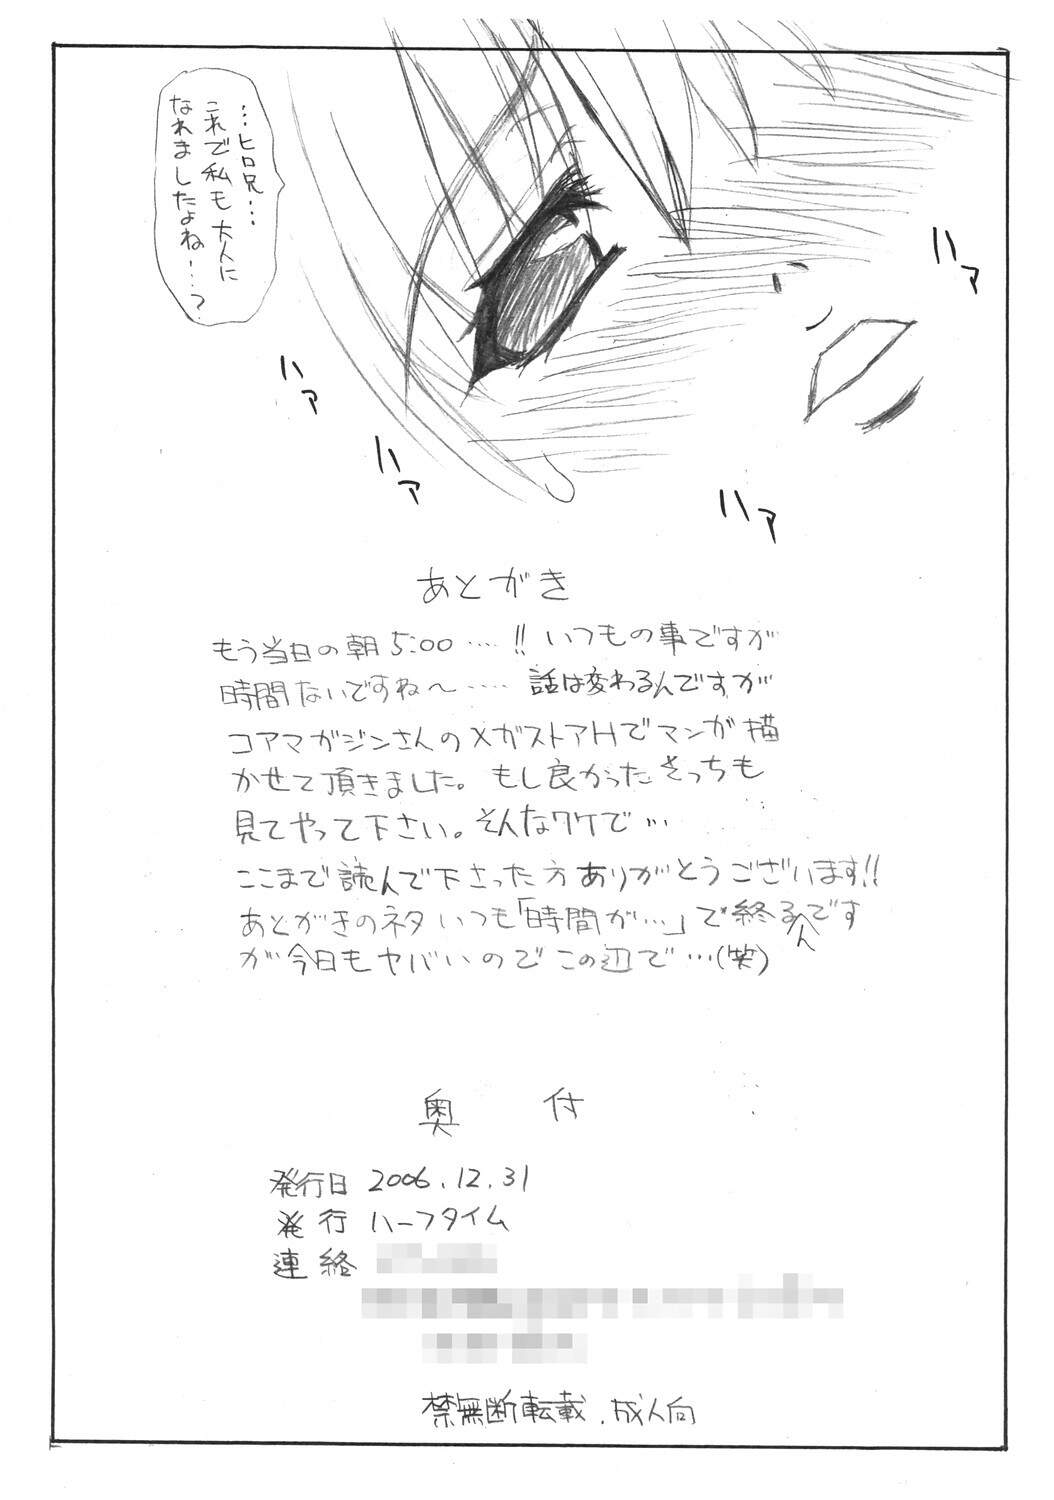 …ヒロ兄…
これで私も大人に
なれましたよね…?
ハァ
ハァ
ハァ
ハァ
あとがき
もう当日の朝5:00……!! いつもの事ですが
時間ないですね〜…… 話は変わるんですが
コアマガジンさんのメガストアHでマンガ描
かせて頂きました。もし良かったらそっちも
見てやって下さい。そんなワケで…
ここまで読んで下さった方ありがとうございます!!
あとがきのネタいつも「時間が…」で終るんです
が今日もヤバいのでこの辺で…(笑)
奥付
発行日 2006.12.31
発行 ハーフタイム
連絡
禁無断転載.成人向